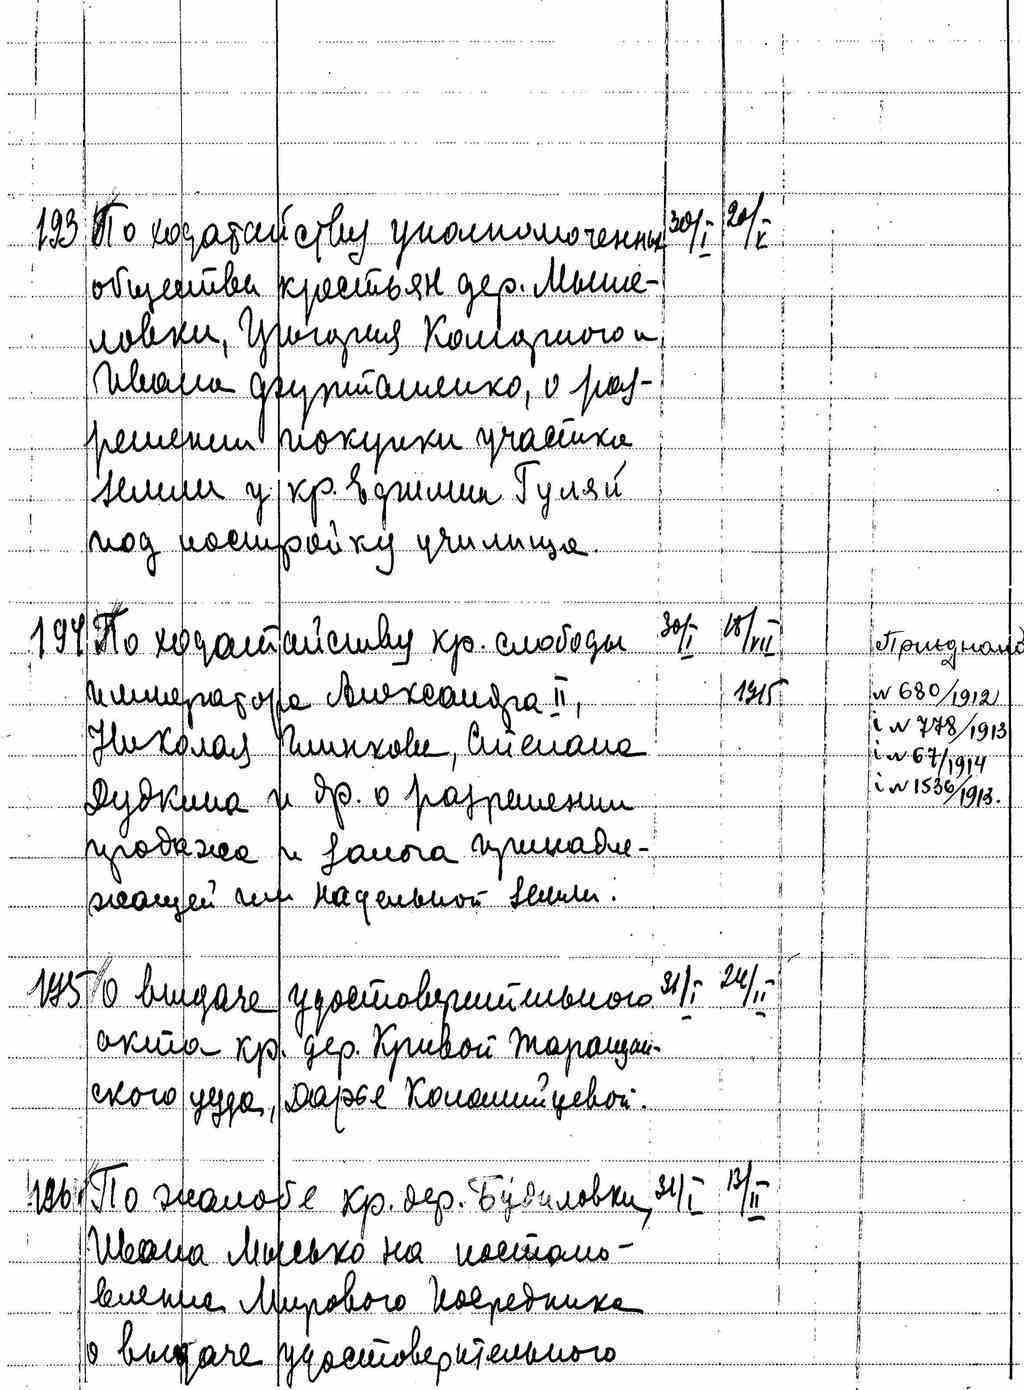 193 По ходатайству уполномоченных 30/I 20/X
общества крестьян дер. Мыше-
ловки, Григория Комарного и
Ивана о раз-
решении покупки участка
земли у кр. Ефимии Гуляй
под постройку училища.
194 По ходатайству кр. слободы 30/I 18/VII Приєднано
императора Александра II, 1915 № 680/1912
Николая Степана і № 778/1913
і № 67/1914
Дудкина и др. о разрешении і № 1536/1913.
продажа и залога принадле-
жащей им надельной земли.
195 О выдаче удостоверительного 31/I 24/II
акта кр. дер. Кривой Таращан-
ского уезда, Дарье Коломийцевой.
196. По жалобе кр. дер. Будиловки, 31/I 13/II
Ивана Мысько на постано-
вление Мирового Посредника
о выдаче удостоверительного